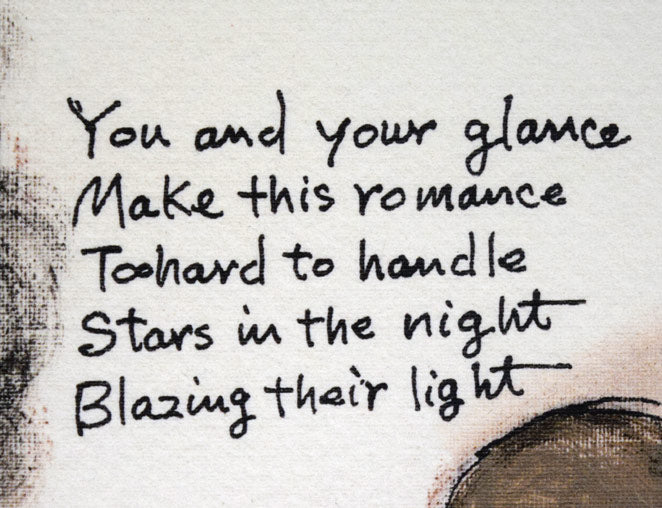 You and your glance
Make this romance
Too hard to handle
Stars in the night
Blazing their light